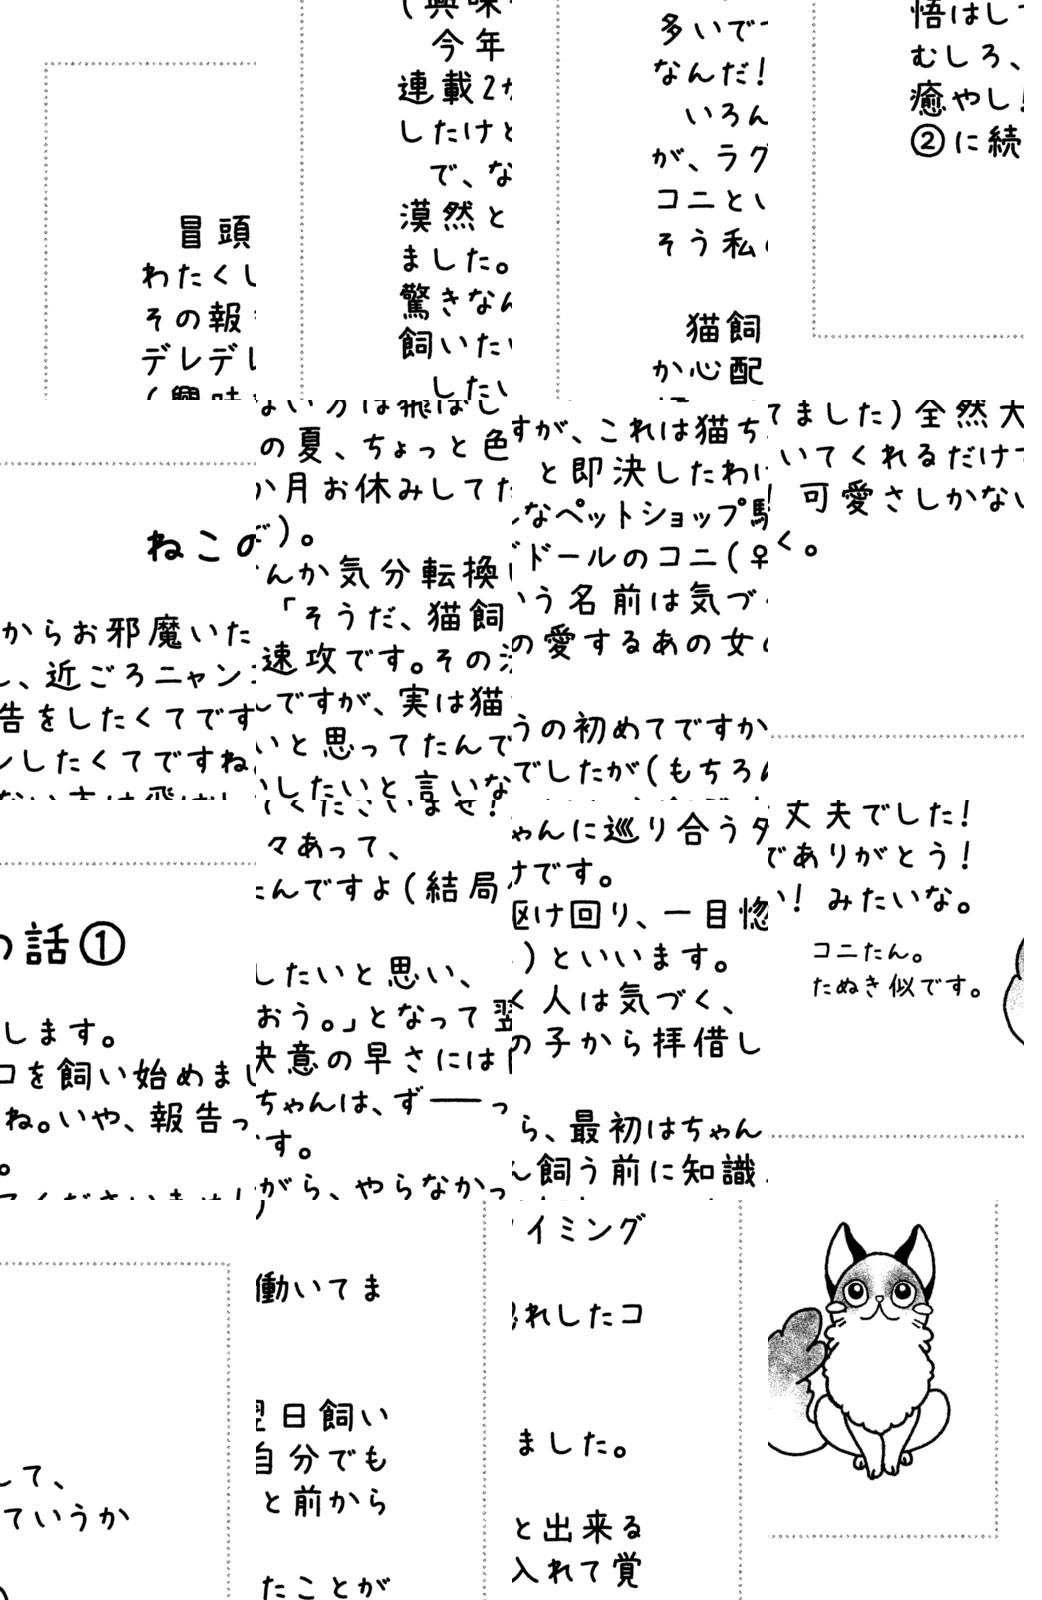 ねこの話①
冒頭からお邪魔いたします。
わたくし、近ごろニャンコを飼い始めまして、
その報告をしたくてですね。いや、報告っていうか
デレデレしたくてですね。
(興味ない方は飛ばしてくださいませ!)
今年の夏、ちょっと色々あって、
連載2か月お休みしてたんですよ(結局働いてま
したけど)。
で、なんか気分転換したいと思い、
漠然と「そうだ、猫飼おう。」となって翌日飼い
ました。速攻です。その決意の早さには自分でも
驚きなんですが、実は猫ちゃんは、ず――っと前から
飼いたいと思ってたんです。
したいしたいと言いながら、やらなかったことが
多いですが、これは猫ちゃんに巡り合うタイミング
なんだ!と即決したわけです。
いろんなペットショップ駆け回り、一目惚れしたコ
が、ラグドールのコニ(♀)といいます。
コニという名前は気づく人は気づく、
そう私の愛するあの女の子から拝借しました。
猫飼うの初めてですから、最初はちゃんと出来る
か心配でしたが(もちろん飼う前に知識入れて覚
悟はしてました)全然大丈夫でした!
むしろ、いてくれるだけでありがとう!
癒やし! 可愛さしかない! みたいな。
②に続く。
コニたん。
たぬき似です。